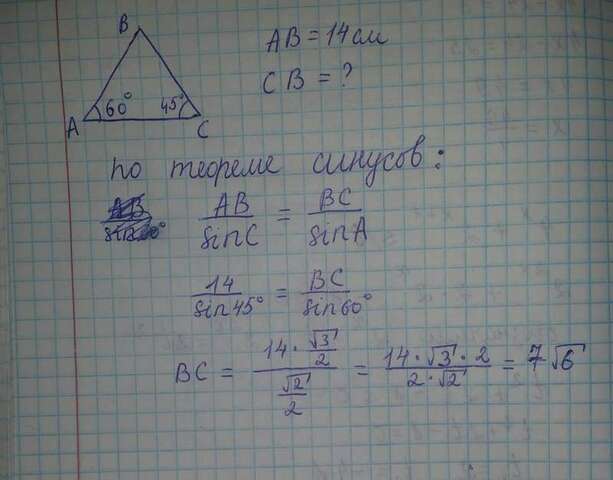 B
AB = 14 см
CB = ?
60° 45°
A C
по теореме синусов:
AB/sinC = BC/sinA
14/sin45° = BC/sin60°
BC = (14 · √3/2)/(√2/2) = (14 · √3 · 2)/(2 · √2) = 7√6